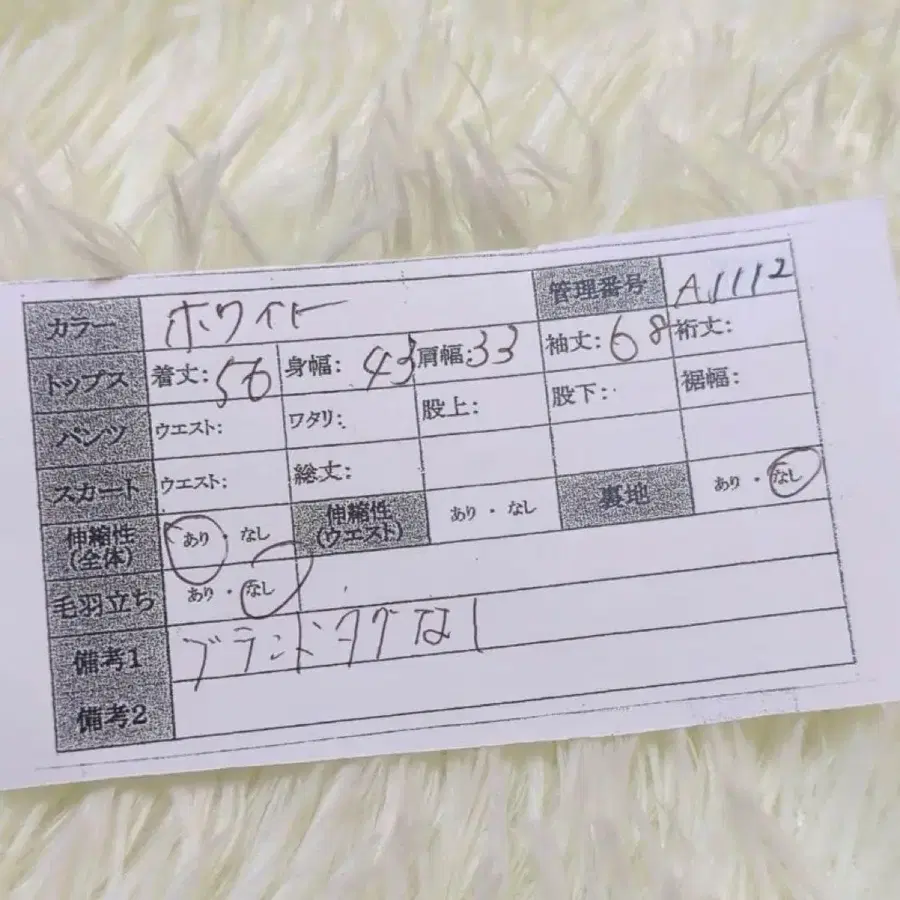 カラー ホワイト 管理番号 A1112
トップス 着丈: 56 身幅: 43 肩幅: 33 袖丈: 68 裄丈:
パンツ ウエスト: ワタリ: 股上: 股下: 裾幅:
スカート ウエスト: 総丈:
伸縮性(全体) あり・なし 伸縮性(ウエスト) あり・なし 裏地 あり・なし
毛羽立ち あり・なし
備考1 ブランドタグなし
備考2